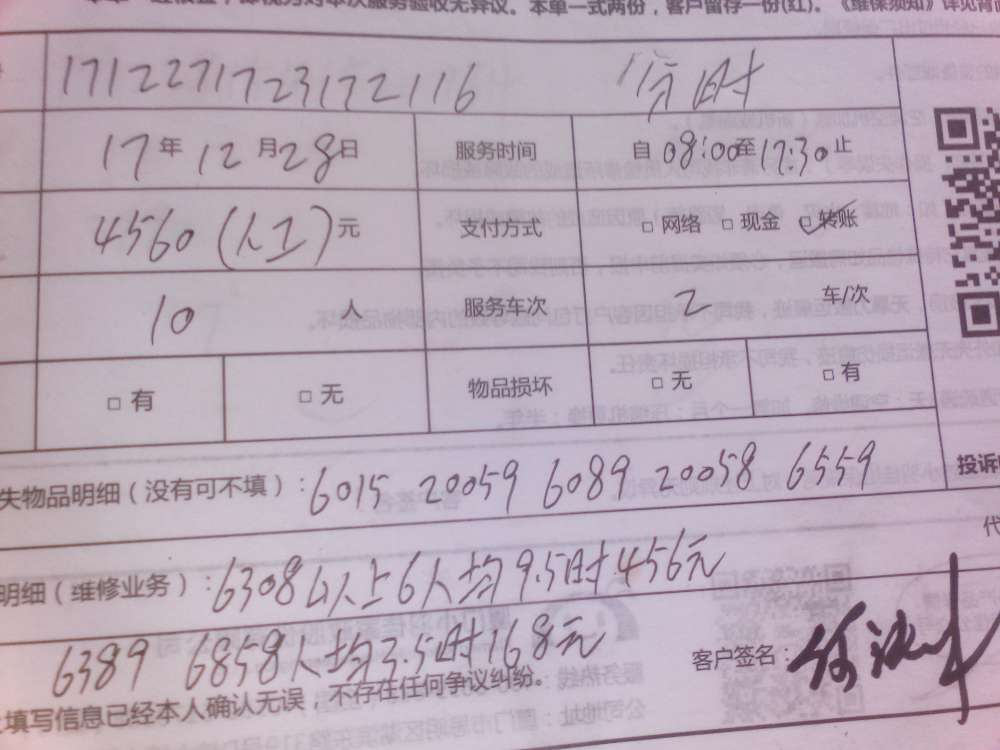 次服务验收无异议。本单一式两份，客户留存一份(红)。《维保须知》详见背面
17122717231722116
17年12月28日 服务时间 自08:00至17:30止
4560(人工)元 支付方式 □网络 □现金 转账
10 人 服务车次 2 车/次
□有 □无 物品损坏 □无 □有
失物品明细（没有可不填）: 6015 20059 6089 20058 6559 投诉
明细（维修业务）: 6308 以上6人均9.5时456元 代
6389 6858人均3.5时168元
客户签名:
填写信息已经本人确认无误，不存在任何争议纠纷。